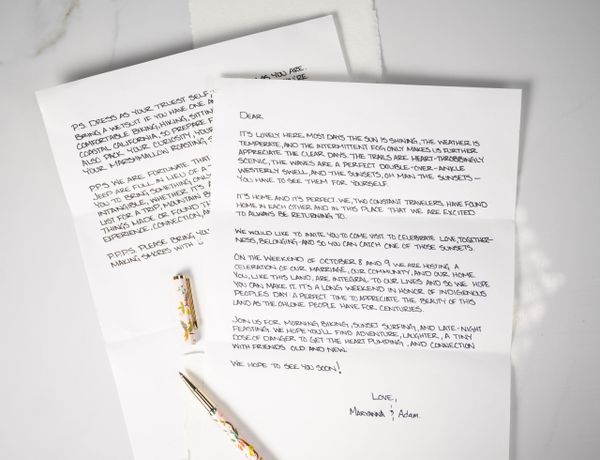 P.S. DRESS AS YOUR TRUEST SELF,
AS YOU ARE.
BRING A WETSUIT IF YOU HAVE ONE,
COMFORTABLE BIKING, HIKING, SITTING
COASTAL CALIFORNIA, SO PREPARE
ALSO PACK YOUR CURIOSITY, YOUR
YOUR MARSHMALLOW ROASTING,
P.P.S. WE ARE FORTUNATE THAT
JEEP ARE FULL. IN LIEU OF A
YOU TO BRING SOMETHING
INTANGIBLE. WHETHER IT'S A
LIST FOR A TRIP, MOUNTAIN
THINGS MADE OR FOUND
EXPERIENCE, CONNECTION,
P.P.P.S. PLEASE BRING
MAKING SMORES WITH
DEAR
IT'S LOVELY HERE. MOST DAYS THE SUN IS SHINING, THE WEATHER IS
TEMPERATE, AND THE INTERMITTENT FOG ONLY MAKES US FURTHER
APPRECIATE THE CLEAR DAYS. THE TRAILS ARE HEART-THROBBINGLY
SCENIC, THE WAVES ARE A PERFECT DOUBLE-OVER-ANKLE
WESTERLY SWELL, AND THE SUNSETS, OH MAN THE SUNSETS —
YOU HAVE TO SEE THEM FOR YOURSELF.
IT'S HOME AND IT'S PERFECT. WE, TWO CONSTANT TRAVELERS, HAVE FOUND
HOME IN EACH OTHER AND IN THIS PLACE THAT WE ARE EXCITED
TO ALWAYS BE RETURNING TO.
WE WOULD LIKE TO INVITE YOU TO COME VISIT TO CELEBRATE LOVE, TOGETHER-
NESS, BELONGING - AND SO YOU CAN CATCH ONE OF THOSE SUNSETS.
ON THE WEEKEND OF OCTOBER 8 AND 9 WE ARE HOSTING A
CELEBRATION OF OUR MARRIAGE, OUR COMMUNITY, AND OUR HOME.
YOU, LIKE THIS LAND, ARE INTEGRAL TO OUR LIVES AND SO WE HOPE
YOU CAN MAKE IT. IT'S A LONG WEEKEND IN HONOR OF INDIGENOUS
PEOPLES DAY. A PERFECT TIME TO APPRECIATE THE BEAUTY OF THIS
LAND AS THE OHLONE PEOPLE HAVE FOR CENTURIES.
JOIN US FOR MORNING BIKING, SUNSET SURFING, AND LATE-NIGHT
FEASTING. WE HOPE YOU'LL FIND ADVENTURE, LAUGHTER, A TINY
DOSE OF DANGER TO GET THE HEART PUMPING, AND CONNECTION
WITH FRIENDS OLD AND NEW.
WE HOPE TO SEE YOU SOON!
LOVE,
MARYANNA & ADAM